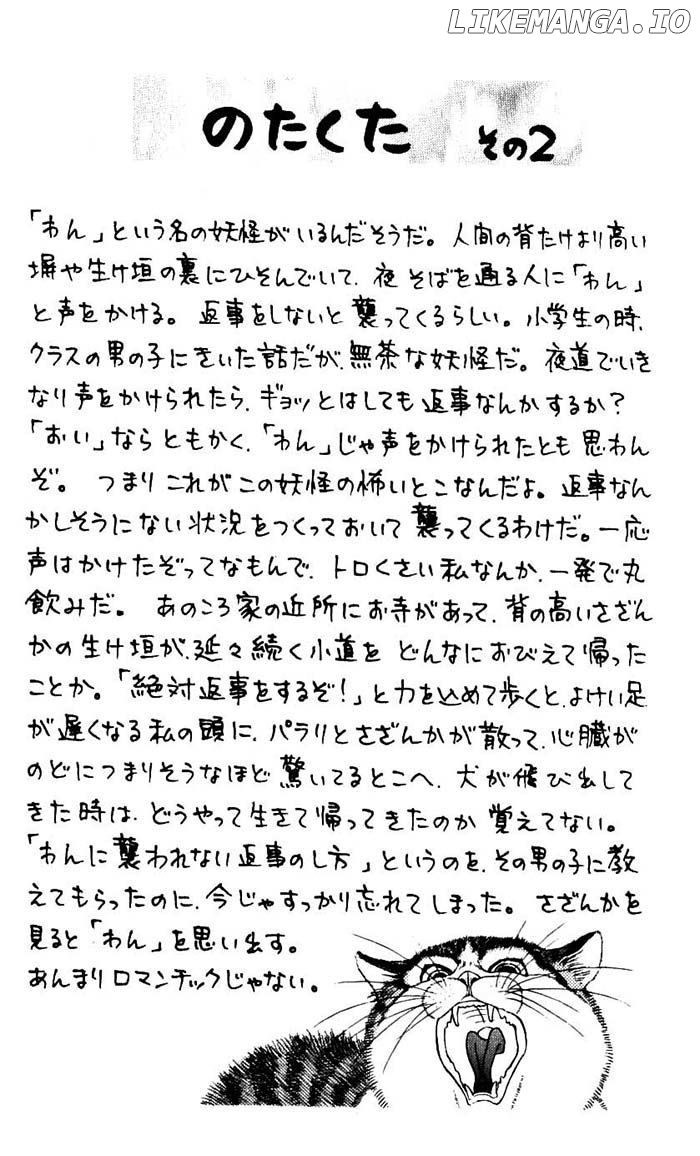 LIKEMANGA.IO
のたくた その2
「わん」という名の妖怪がいるんだそうだ。人間の背たけより高い
塀や生け垣の裏にひそんでいて、夜そばを通る人に「わん」
と声をかける。返事をしないと襲ってくるらしい。小学生の時、
クラスの男の子にきいた話だが、無茶な妖怪だ。夜道でいき
なり声をかけられたら、ギョッとはしても返事なんかするか?
「おい」ならともかく、「わん」じゃ声をかけられたとも思わん
ぞ。 つまりこれがこの妖怪の怖いとこなんだよ。返事なん
かしそうにない状況をつくっておいて襲ってくるわけだ。一応
声はかけたぞってなもんで、トロくさい私なんか、一発で丸
飲みだ。 あのころ家の近所にお寺があって、背の高いさざん
かの生け垣が、延々続く小道をどんなにおびえて帰った
ことか。「絶対返事をするぞ!」と力を込めて歩くと、よけい足
が遅くなる私の頭に、パラリとさざんかが散って、心臓が
のどにつまりそうなほど驚いてるとこへ、犬が飛び出して
きた時は、どうやって生きて帰ってきたのか覚えてない。
「わんに襲われない返事のし方」というのを、その男の子に教
えてもらったのに、今じゃすっかり忘れてしまった。 さざんかを
見ると「わん」を思い出す。
あんまりロマンチックじゃない。